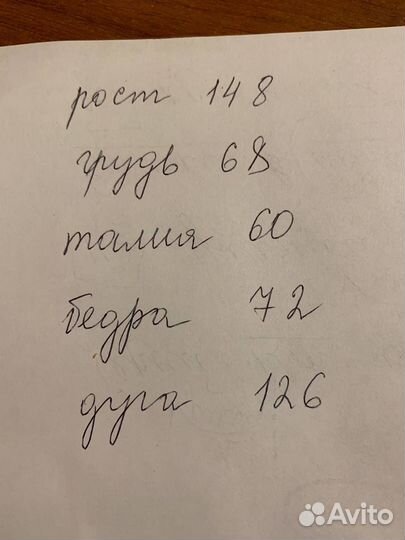 рост 148
грудь 68
талия 60
бедра 72
дуга 126
Avito